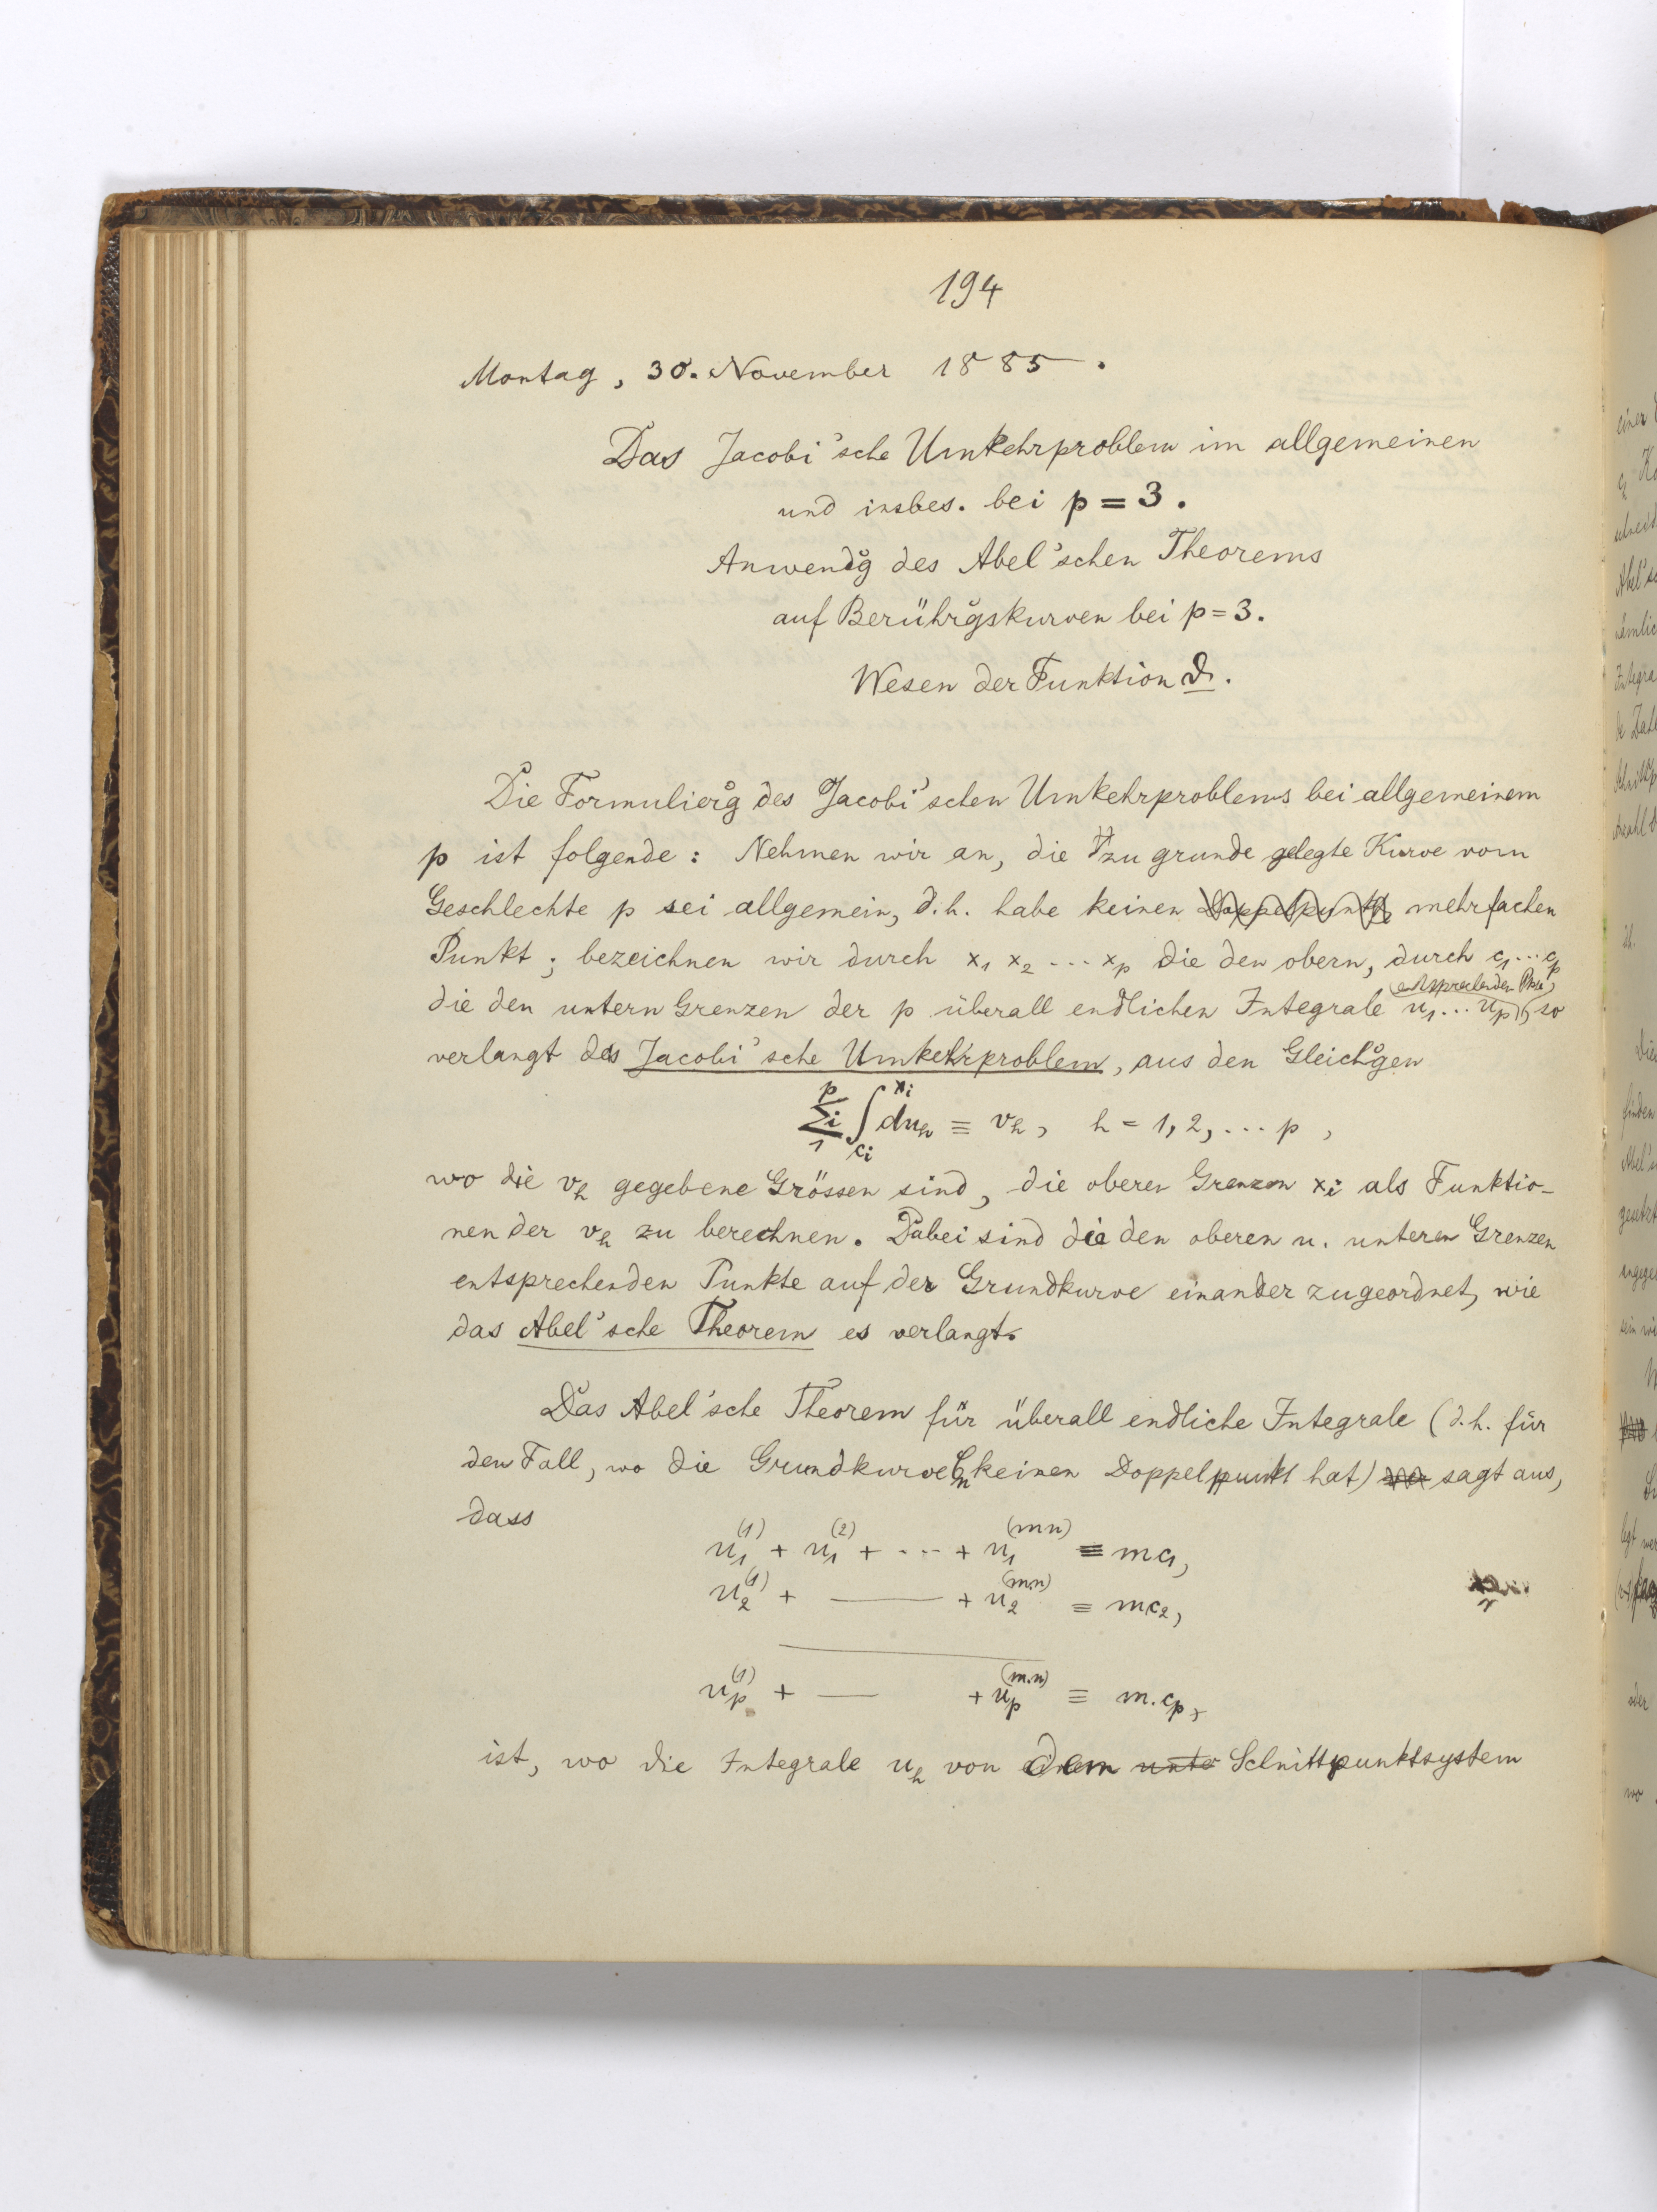 194
Montag, 30. November 1885.
Das Jacobi'sche Umkehrproblem im allgemeinen
und insbes. bei p = 3.
Anwendg des Abel'schen Theorems
auf Berührgskurven bei p = 3.
Wesen der Funktion ϑ.
Die Formulierg des Jacobi'schen Umkehrproblems bei allgemeinem
p ist folgende: Nehmen wir an, die zu grunde gelegte Kurve vom
Geschlechte p sei allgemein, d.h. habe keinen mehrfachen
Punkt; bezeichnen wir durch x₁ x₂ ... xₚ die den obern, durch c₁ ... cₚ
entsprechenden Pkte,
die den untern Grenzen der p überall endlichen Integrale u₁ ... uₚ, so
verlangt das Jacobi'sche Umkehrproblem, aus den Gleichgen
\sum_1^p{}_i \int_{c_i}^{x_i} du_h ≡ v_h, h = 1, 2, ... p,
wo die v_h gegebene Grössen sind, die oberen Grenzen x_i als Funktio-
nen der v_h zu berechnen. Dabei sind die den oberen u. unteren Grenzen
entsprechenden Punkte auf der Grundkurve einander zugeordnet, wie
das Abel'sche Theorem es verlangt.
Das Abel'sche Theorem für überall endliche Integrale (d.h. für
den Fall, wo die Grundkurve Cₙ keinen Doppelpunkt hat) sagt aus,
dass
u₁^{(1)} + u₁^{(2)} + ... + u₁^{(mn)} ≡ mc₁,
u₂^{(1)} + — + u₂^{(m.n)} ≡ mc₂,
uₚ^{(1)} + — + uₚ^{(m.n)} ≡ m.cₚ,
ist, wo die Integrale u_h von dem unte Schnittpunktsystem